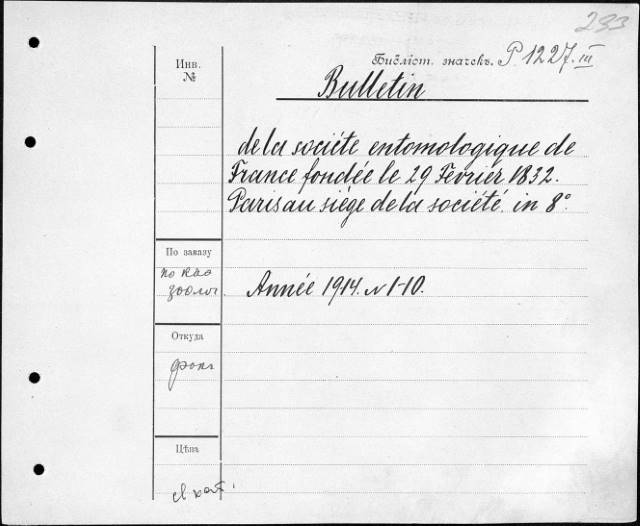 233
Библіот. значекъ. P 1227.III
Инв.
№
Bulletin
de la sociéte entomologique de
France fondée le 29 Fevrier 1832.
Paris au siège de la société. in 8°.
По заказу
зоолог.
Année 1914. N 1-10.
Откуда
Цѣна